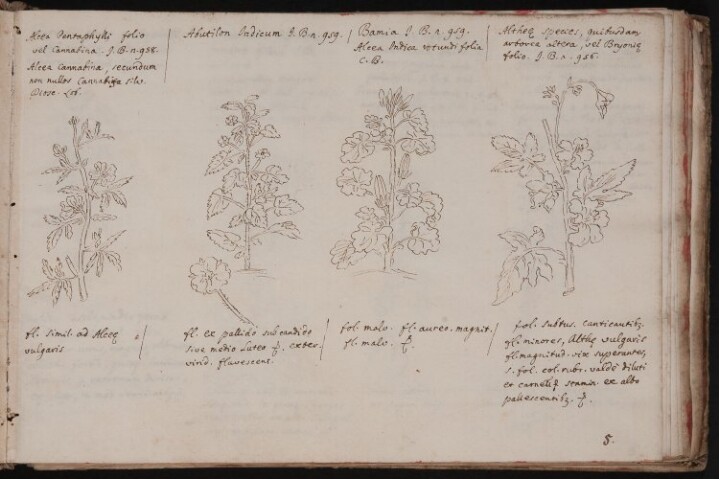 Alcea Pentaphylli folio
vel Cannabina. J. B. n. 958.
Alcea Cannabina, secundum
non nullos Cannabina silv.
Diosc. Lob.
Abutilon Indicum J. B. n. 959.
Bamia J. B. n. 959.
Alcea Indica rotundifolia
C. B.
Altheę species, quibusdam
arborea altera, vel Bryonię
folio. J. B. n. 956.
fl. simil. ad Alceę
vulgaris
fl. ex pallido subcandido
sive medio Luteo exter.
virid. flavescens.
fol. malv. fl. aureo. magnit.
fl. malv.
fol. subtus. canticantibz
fl. minores, Althę vulgaris
fl. magnitud. vix superantes,
s. fol. col. rubr. valdè diluti
et carnei stamin. ex albo
pallescentibz.
5.